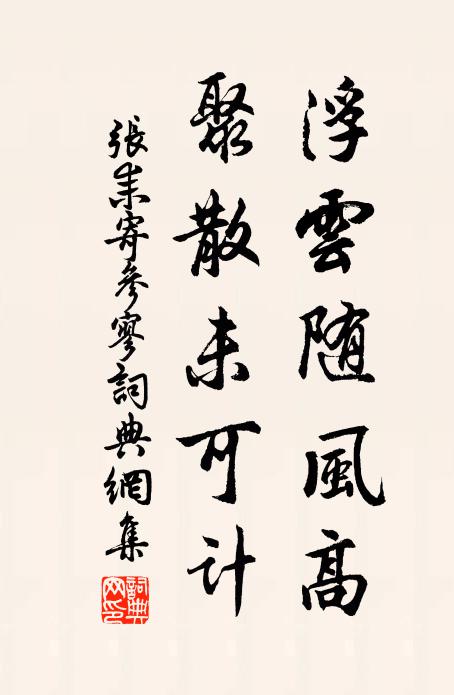 浮雲随風高
聚散未可计
張耒寄參寥詞典網集
詞典網印